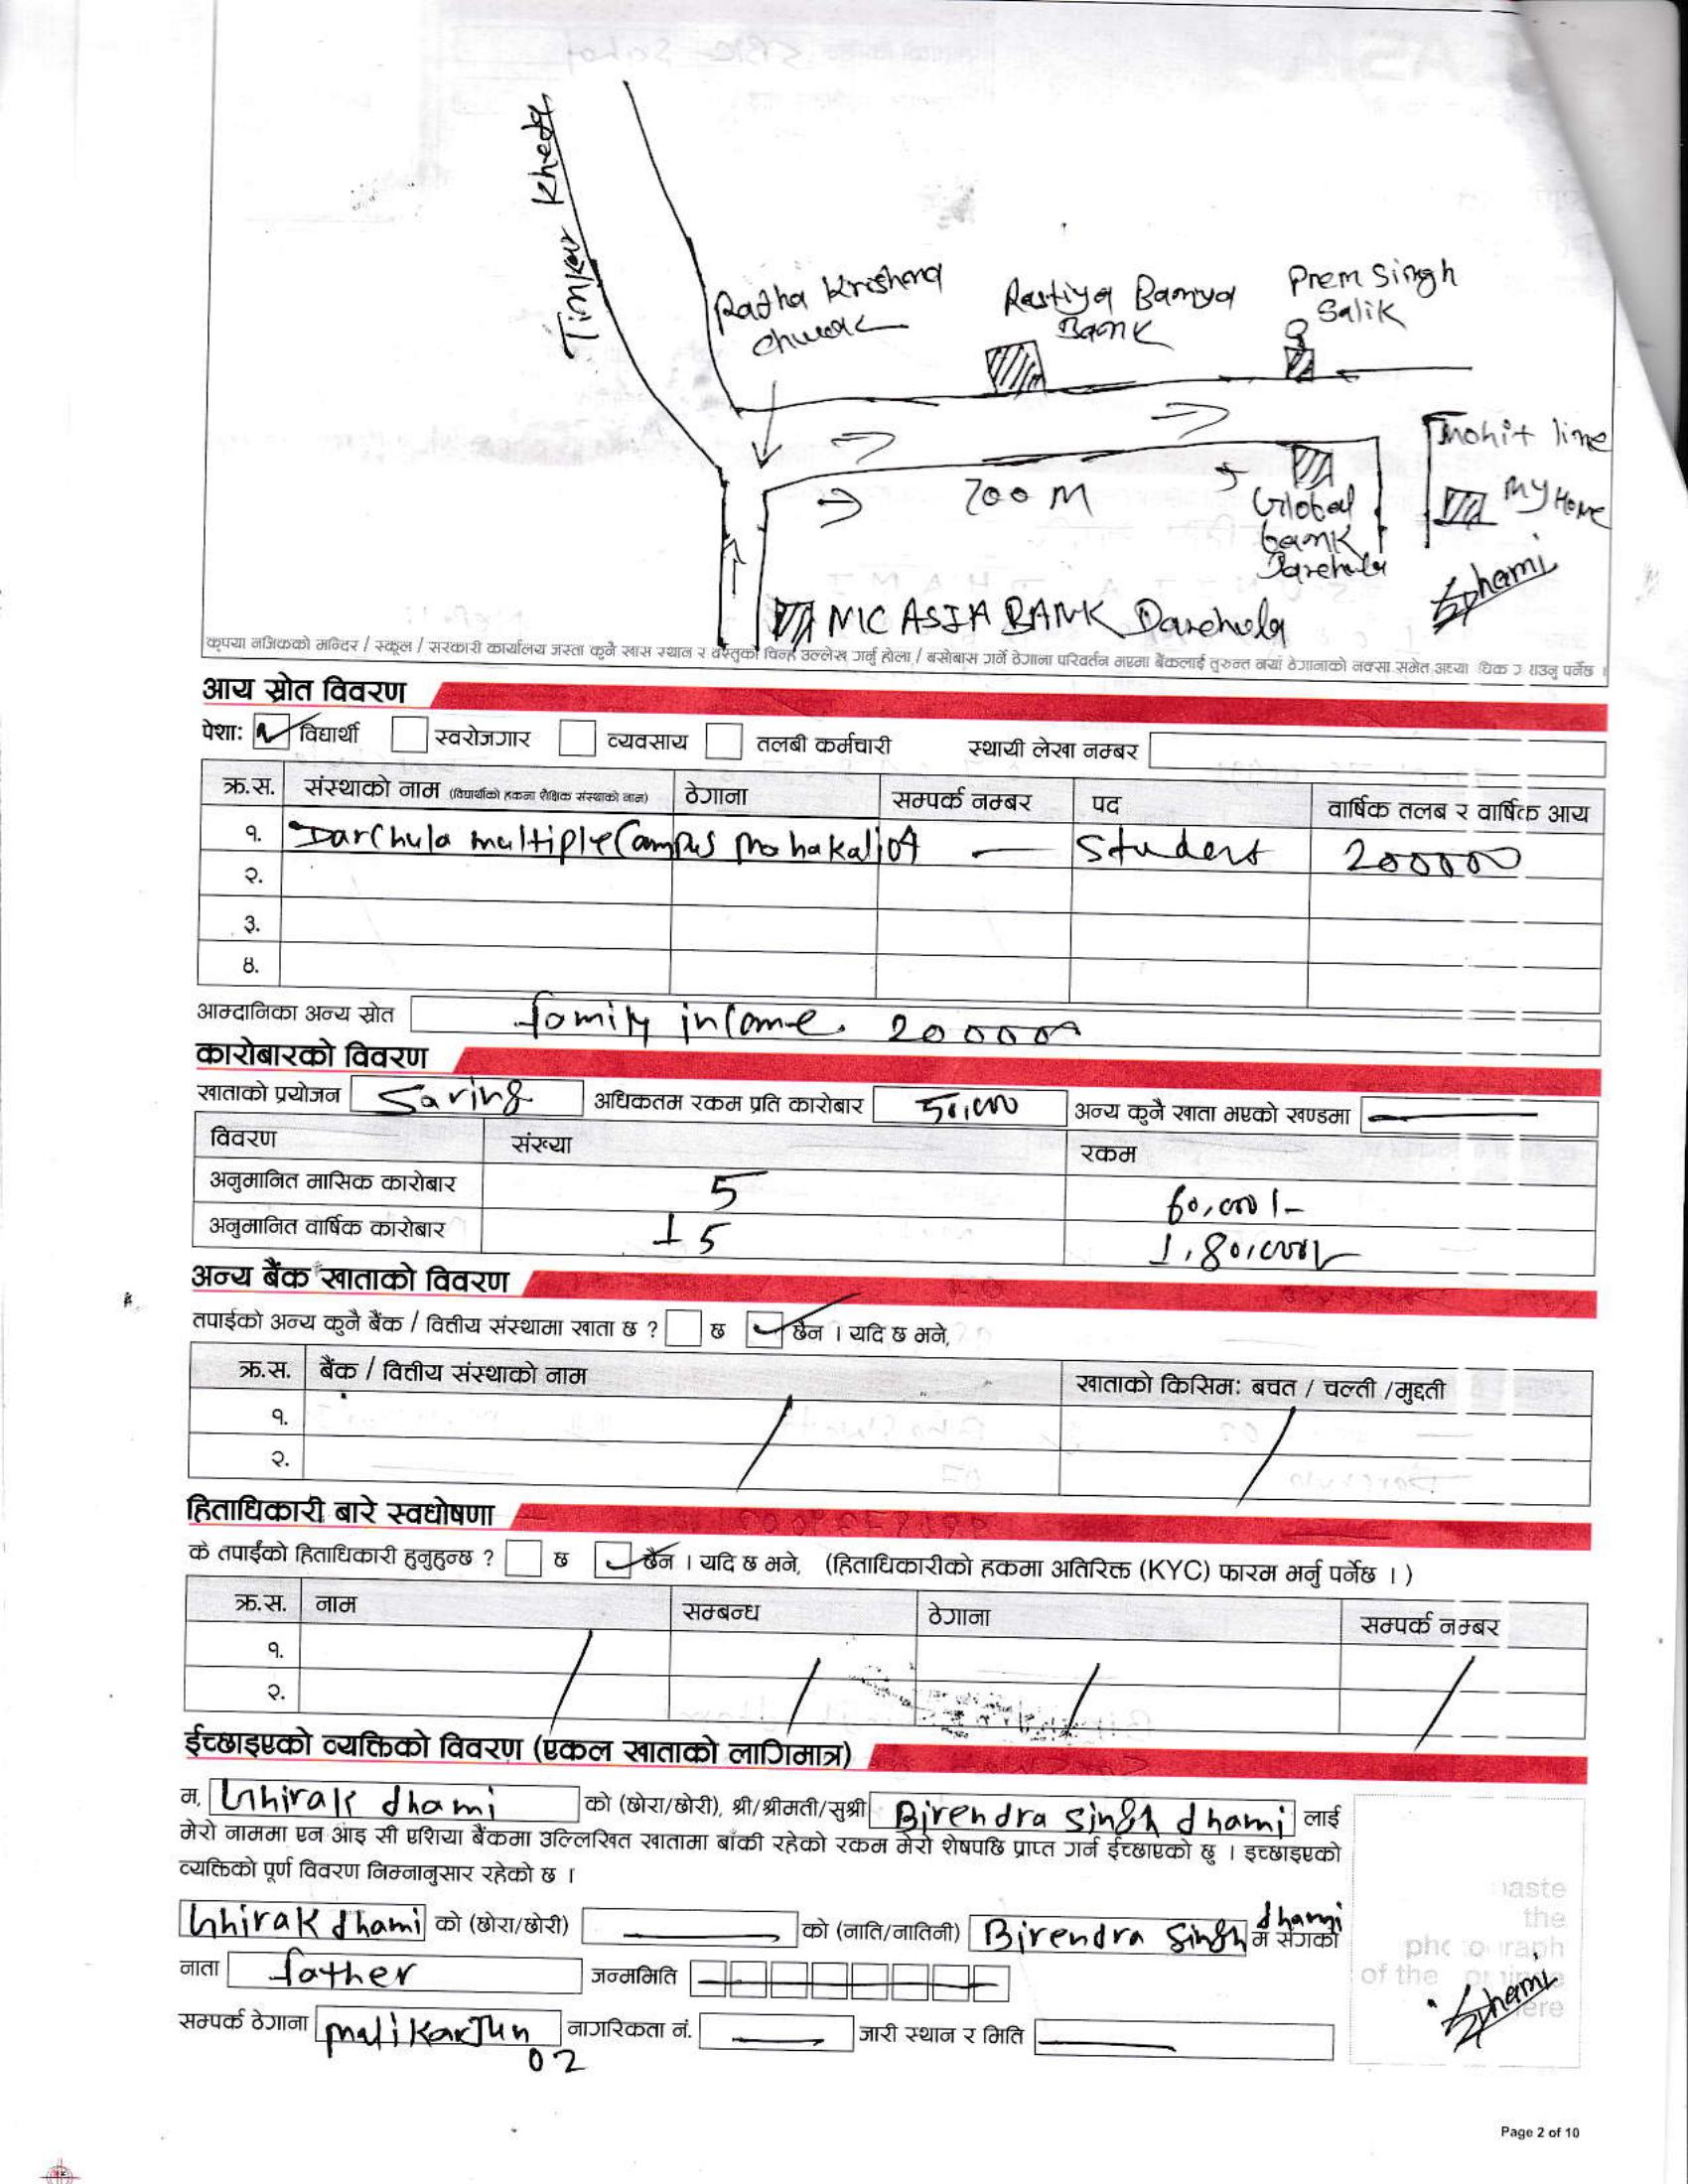 Tinkar Kheda
Radha Krishna
chwok
Rastiya Banya
Bank
Prem Singh
Salik
Mohit line
My Home
700 M
Global
bank
Darchula
Dhami
NIC ASIA BANK Darchula
कृपया नजिकको मन्दिर / स्कूल / सरकारी कार्यालय जस्ता कुनै खास स्थान र वस्तुको चिन्ह उल्लेख गर्नु होला / बसोबास गर्ने ठेगाना परिवर्तन भएमा बैंकलाई तुरुन्त नयाँ ठेगानाको नक्सा समेत
आय स्रोत विवरण
पेशा: विद्यार्थी स्वरोजगार व्यवसाय तलबी कर्मचारी स्थायी लेखा नम्बर
क्र.स. संस्थाको नाम (विद्यार्थीको हकमा शैक्षिक संस्थाको नाम) ठेगाना सम्पर्क नम्बर पद वार्षिक तलब र वार्षिक आय
१. Darchula multiple Campus Mahakali 04 — Student 200000
२.
३.
४.
आम्दानिका अन्य स्रोत family income. 200000
कारोबारको विवरण
खाताको प्रयोजन Saving अधिकतम रकम प्रति कारोबार 50,000 अन्य कुनै खाता भएको खण्डमा —
विवरण संख्या रकम
अनुमानित मासिक कारोबार 5 60,000/-
अनुमानित वार्षिक कारोबार 15 1,80,000/-
अन्य बैंक खाताको विवरण
तपाईको अन्य कुनै बैंक / वित्तीय संस्थामा खाता छ ? छ छैन । यदि छ भने,
क्र.स. बैंक / वित्तीय संस्थाको नाम खाताको किसिम: बचत / चल्ती /मुद्दती
१.
२.
हिताधिकारी बारे स्वघोषणा
के तपाईंको हिताधिकारी हुनुहुन्छ ? छ छैन । यदि छ भने, (हिताधिकारीको हकमा अतिरिक्त (KYC) फारम भर्नु पर्नेछ ।)
क्र.स. नाम सम्बन्ध ठेगाना सम्पर्क नम्बर
१.
२.
ईच्छाइएको व्यक्तिको विवरण (एकल खाताको लागिमात्र)
म, dhami को (छोरा/छोरी), श्री/श्रीमती/सुश्री Birendra singh dhami लाई
मेरो नाममा एन आइ सी एशिया बैंकमा उल्लिखित खातामा बाँकी रहेको रकम मेरो शेषपछि प्राप्त गर्न ईच्छाएको छु । इच्छाइएको
व्यक्तिको पूर्ण विवरण निम्नानुसार रहेको छ ।
dhami को (छोरा/छोरी) — को (नाति/नातिनी) Birendra Singh dhami म सँगको
नाता father जन्ममिति
सम्पर्क ठेगाना malikarjun 02 नागरिकता नं. — जारी स्थान र मिति —
paste
the
photograph
of the
here
Dhami
Page 2 of 10